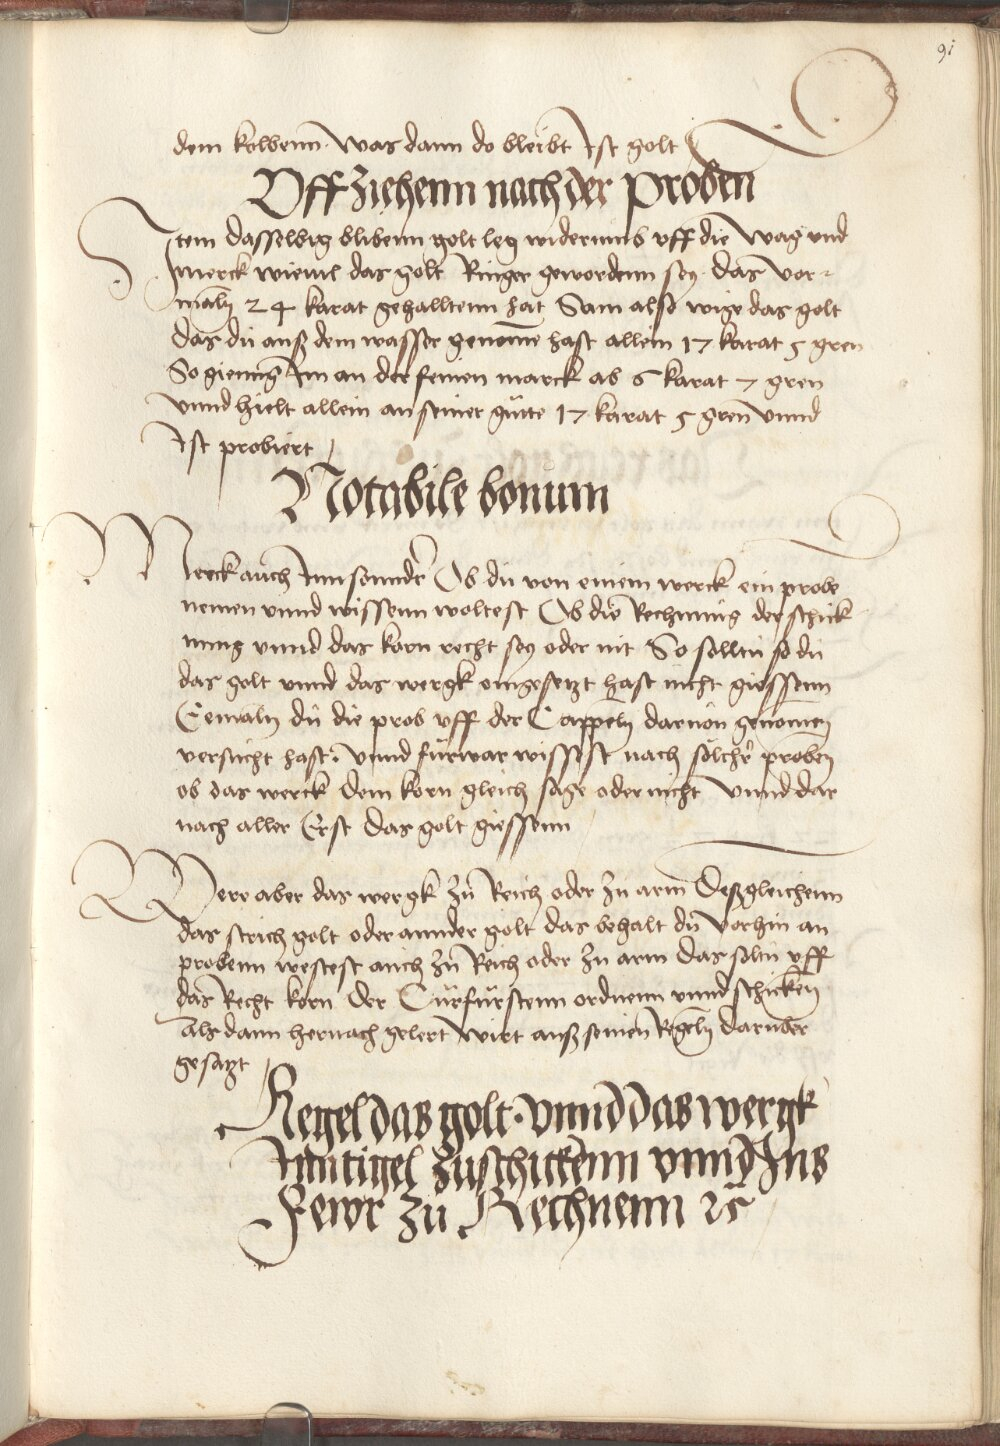 91
dem kolbenn. Was dann do bleibt Ist golt
Uff Ziehenn nach der proben
Item dasselbig blibenn golt leg widerumb uff die Wag und
merck wieuil das golt Ringer gewordenn sey. das Vor-
maln 24 karat gehalltenn hat Sam also wige das golt
das du auß dem wasser genome hast allein 17 karat 5 gren
So gienng Im an der feinen marck ab 6 karat 7 gren
Vnnd hielt allein an seiner gutte 17 karat 5 gren Vnnd
Ist probiert
Notabile bonum
Merck auch Inn sonnder Ob du von einem werck ein probe
nemen vnnd wissenn woltest Ob die Rechnung der schick
nung vnnd das korn recht sey oder nit So solltu so du
das golt vnnd das wergk eingesetzt hast nicht giessenn
Eemaln du die prob uff der Cappeln daruon genomen
versucht hast. Vnnd fürwar wissest nach sölchr proben
ob das werck dem korn gleich sage oder nicht Vnnd dar
nach aller Erst das golt giessenn
Were aber das wergk zu Reich oder zu arm Deßgleichenn
das strich golt oder annder golt das behalt du Vorhin an
probenn westest auch zu Reich oder zu arm das soltu uff
das Recht korn der Curfürstenn ordnenn vnnd schicken
Als dann hernach gelert Wirt auß seinen Regeln daruber
gesatzt
Regel das golt. vnnd das wergk
Inn tigel zuschickenn vnnd Ins
Fewr zu Rechnenn